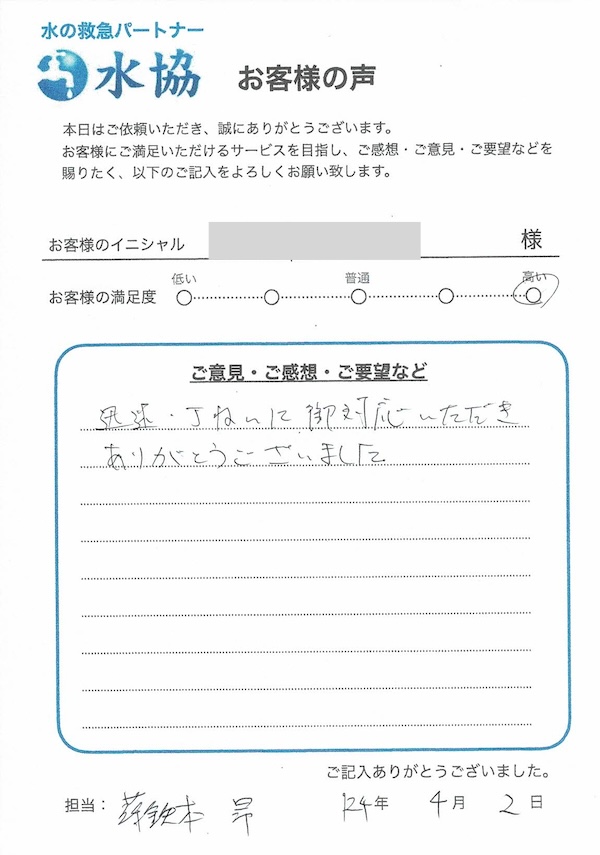 水の救急パートナー
水協 お客様の声
本日はご依頼いただき、誠にありがとうございます。
お客様にご満足いただけるサービスを目指し、ご感想・ご意見・ご要望などを
賜りたく、以下のご記入をよろしくお願い致します。
お客様のイニシャル 様
低い 普通 高い
お客様の満足度
ご意見・ご感想・ご要望など
迅速・丁ねいに御対応いただき
ありがとうございました
ご記入ありがとうございました。
担当: 昇 '24年 4月 2日